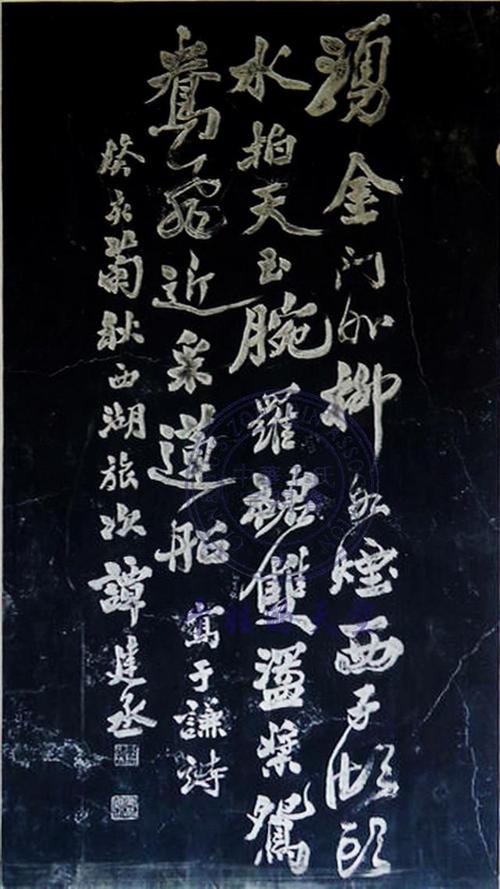 湧金門外柳如煙西子湖頭
水拍天玉腕羅裙雙盪槳鴛
鴦飛近采蓮船 寫于謙詩
癸亥菊秋西湖旅次 譚建丞